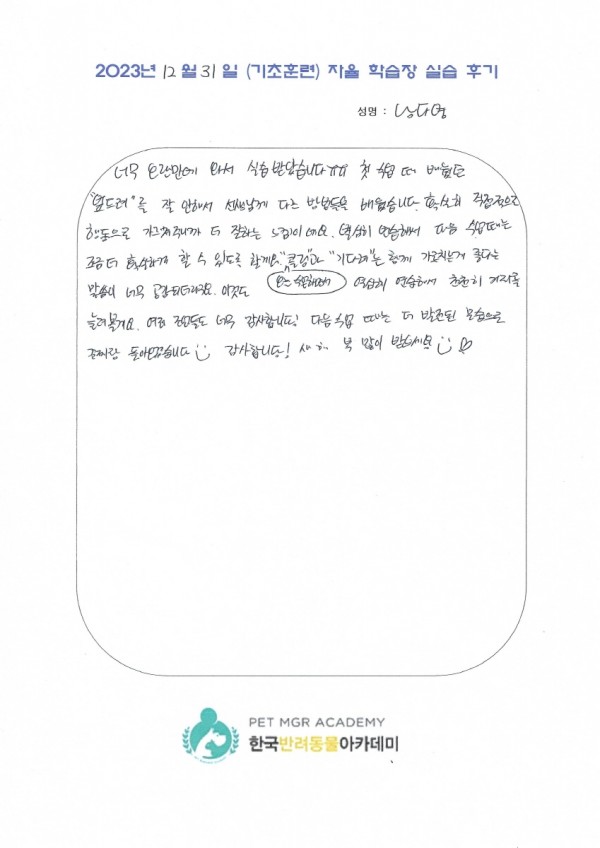 2023년 12월 31일 (기초훈련) 자율 학습장 실습 후기
성명 :
너무 오랜만에 와서 실습 받았습니다ㅠㅠ 첫 수업 때 배웠던
"엎드려"를 잘 안해서 선생님께 다른 방법들을 배웠습니다. 확실히 직접적으로
행동으로 가르쳐주니까 더 잘하는 느낌이에요. 열심히 연습해서 다음 수업때는
조금 더 확실하게 할 수 있도록 할게요. "콜링"과 "기다려"는 함께 가르치는게 좋다는
말씀이 너무 공감되더라구요. 이것도 열심히 연습해서 천천히 거리를
늘려볼게요. 여러 정보들도 너무 감사합니다! 다음 수업 때는 더 발전된 모습으로
돌아오겠습니다 감사합니다! 새해 복 많이 받으세요
PET MGR ACADEMY
한국반려동물아카데미